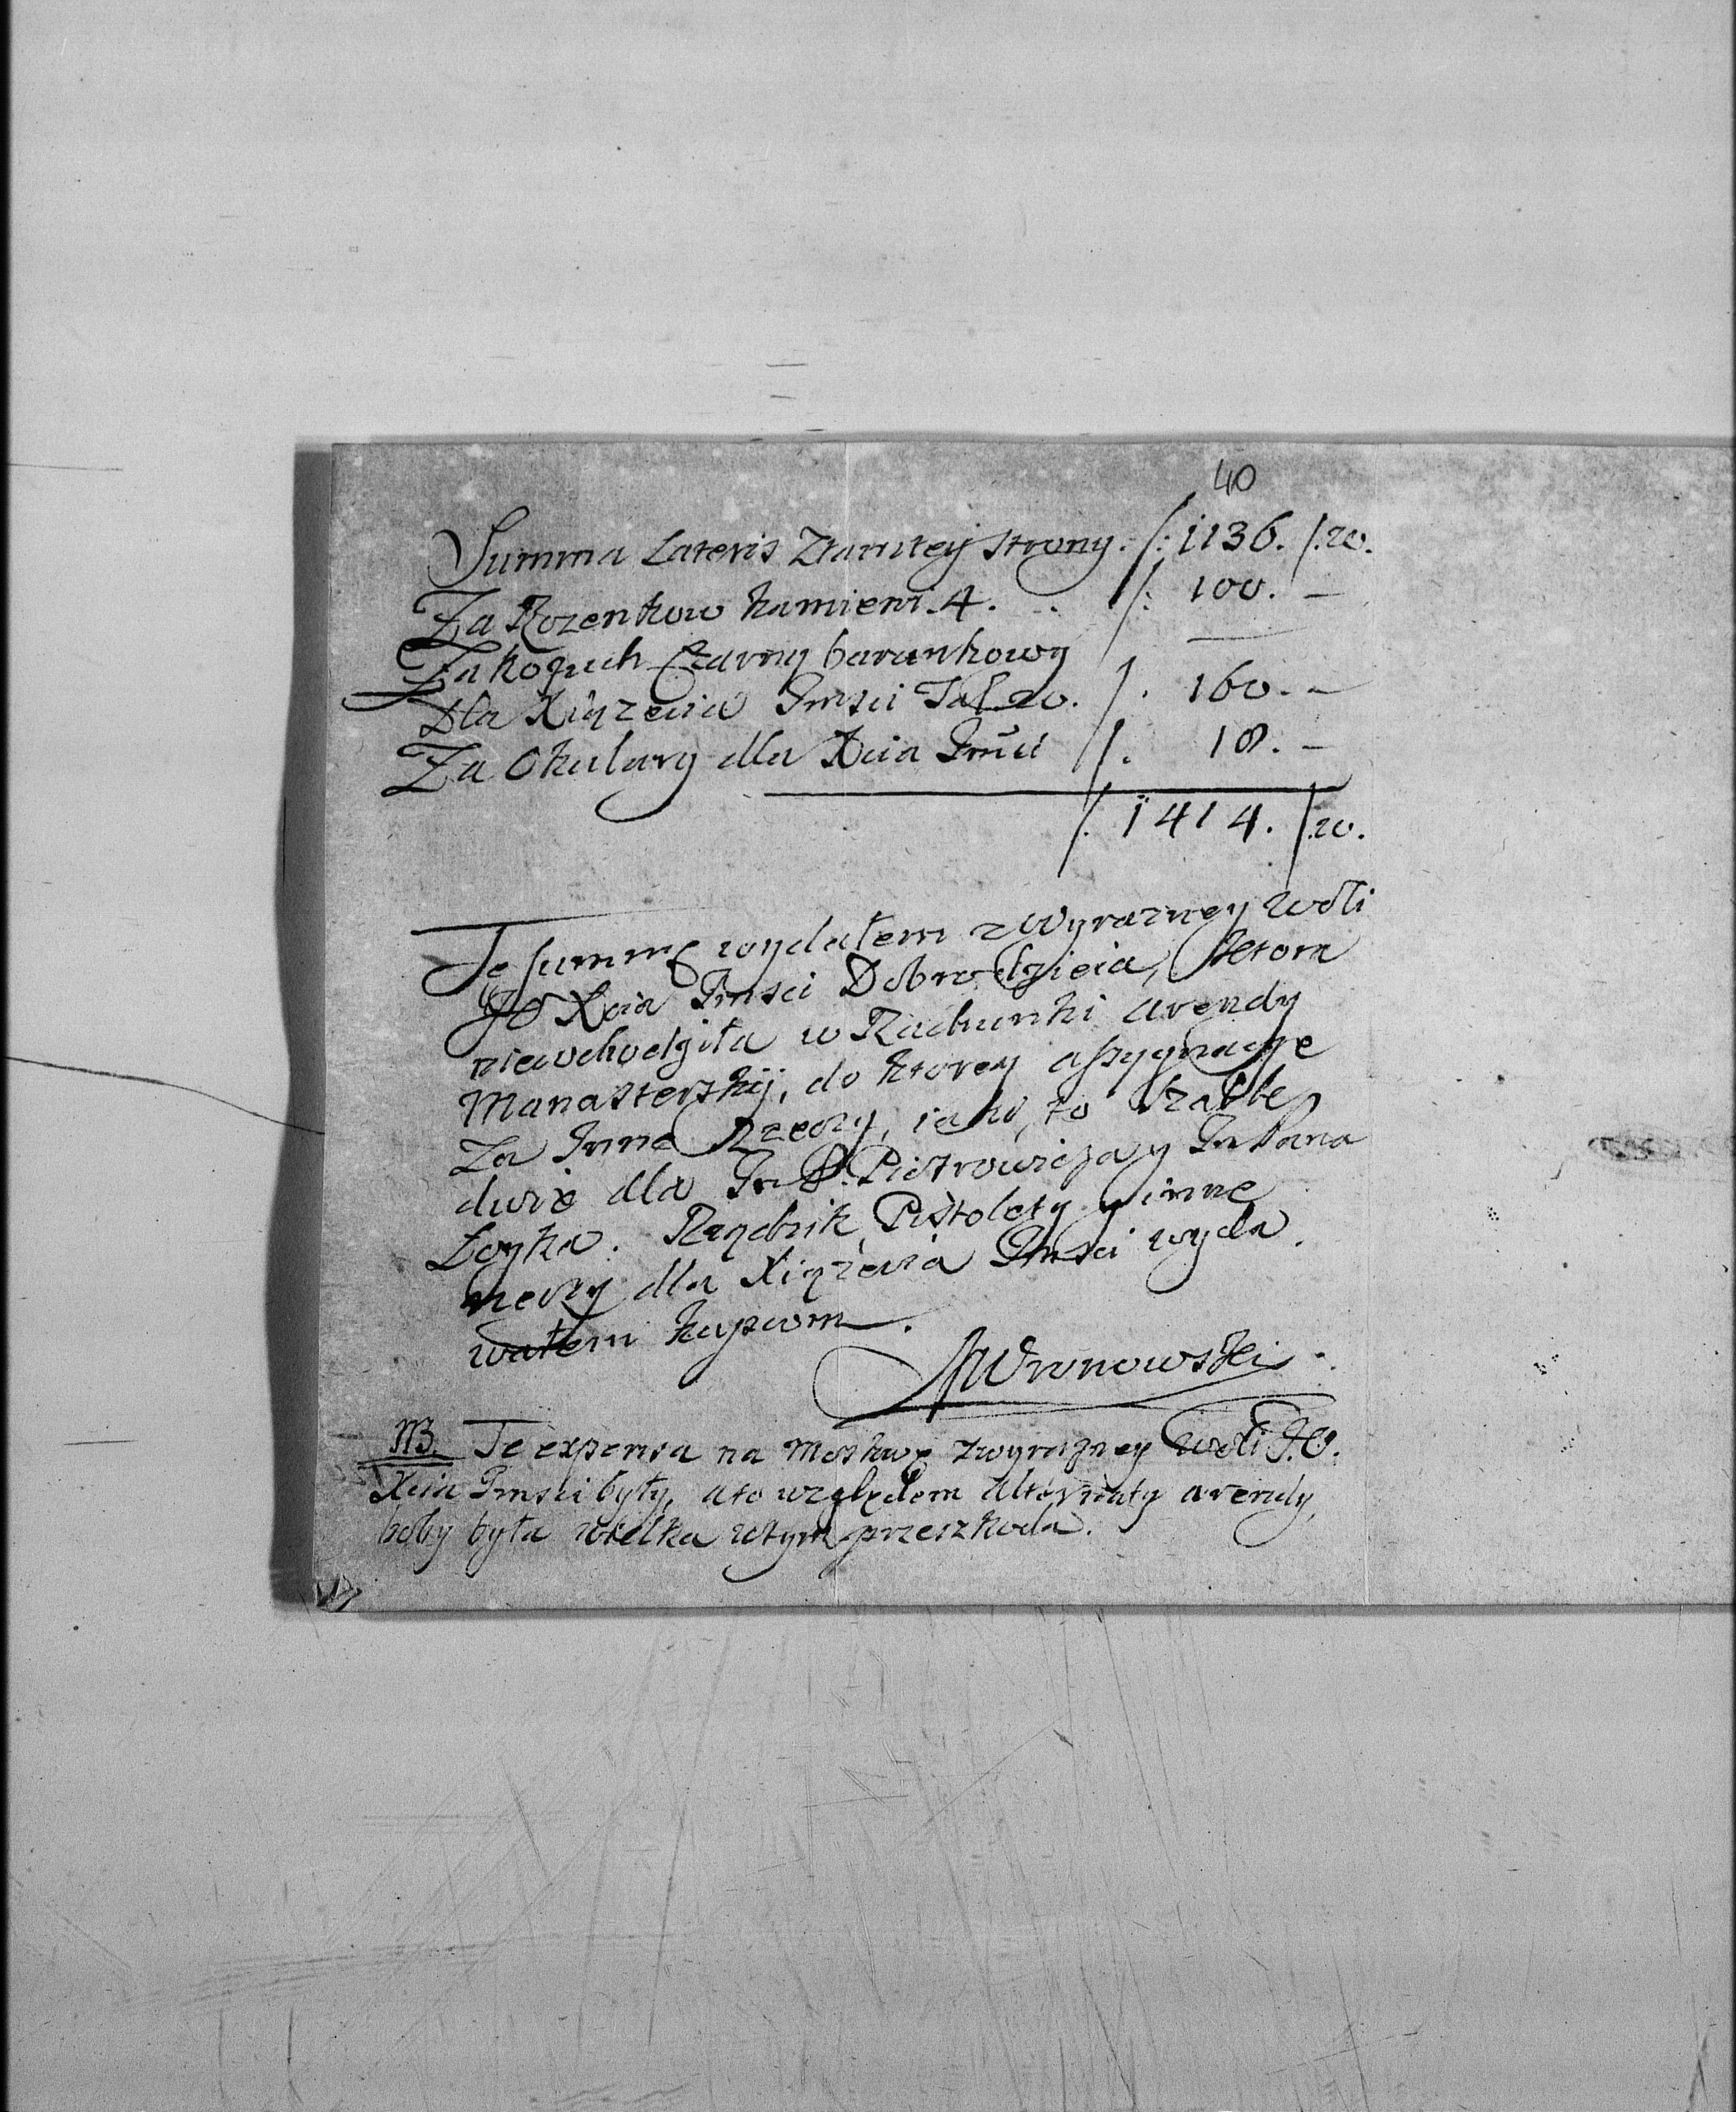 40
Summa Lateris Ztamtey strony. /: 1136. /.20.
Za Rozenkow kamieni. 4. .. /: 100. –
Za kożuch Czarny barankowy
Dla Xiązecia Jmsci Tal. 20. /. 160. –
Za Okulary dla Xcia Jmci /. 18. –
/. 1414. /.20.
Te summę wydałem z wyrazney woli
JO Xcia Jmsci Dobrodzieia, ktora
niewchodziła w Rachunki arendy
Manasterskij, do ktorey assygnacye
Za Inne Rzeczy, iako, to Szable
dwie dla Jm P. Piotrowicza y Jm Pana
Łoyka. Rządzik, Pistolety y inne
rzeczy dla Xiążecia Jmsci wyda.
wałem kupcom.
AWronowski.
NB. Te expensa na Moskwę zwyrazney woli J.O.
Xcia Jmsci były, ato względem Alternaty arendy,
boby była wielka wtym przeszkoda.